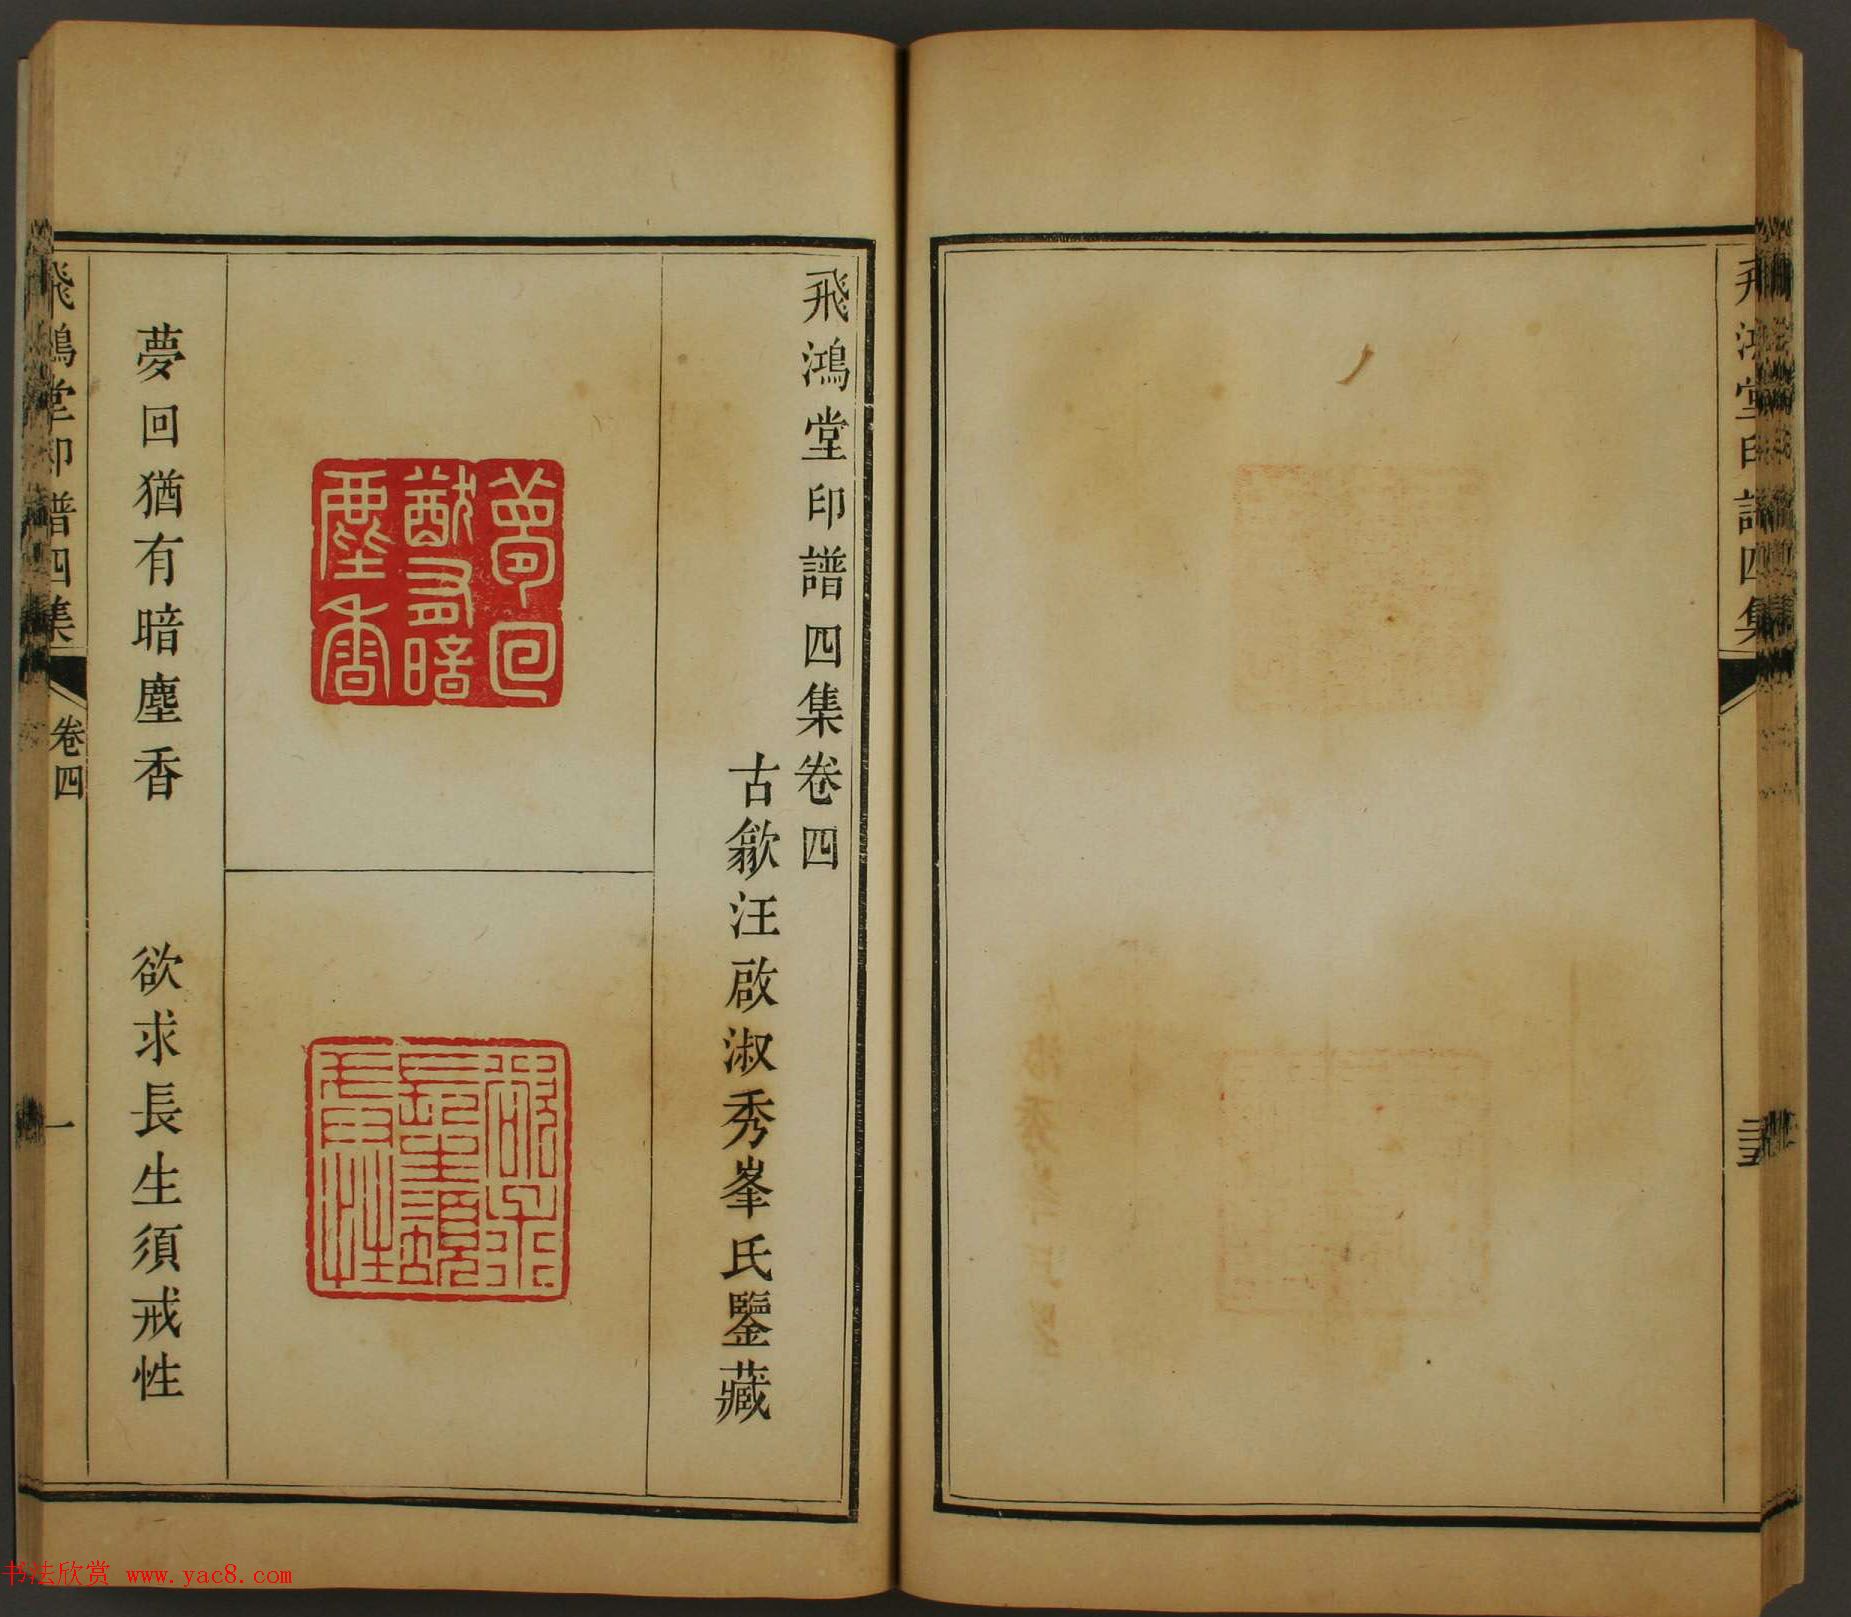 飛鴻堂印譜四集
飛鴻堂印譜四集卷四
古歙汪啟淑秀峯氏鑒藏
夢回猶有暗塵香
欲求長生須戒性
夢回猶有暗塵香
欲求長生須戒性
飛鴻堂印譜四集
卷四
一
书法欣赏 www.yac8.com